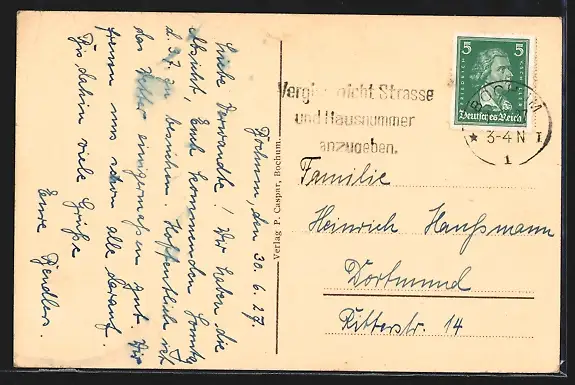 Bochum, den 30.6.27.
Liebe Verwandte! Wir haben die
Absicht, Euch kommenden Sonntag
d. 3.7. zu besuchen. Hoffentlich ist
das Wetter einigermaßen gut. Wir
freuen uns schon alle darauf.
Bis dahin viele Grüße
Eure
Verlag P. Caspar, Bochum.
Vergiss nicht Strasse
und Hausnummer
anzugeben.
5 5
FRIEDRICH V. SCHILLER
Deutsches Reich
BOCHUM
* 3-4 N I
1
Familie
Heinrich Haußmann
Dortmund
Ritterstr. 14